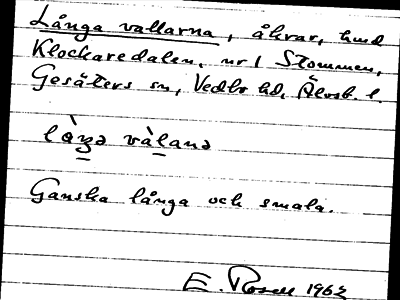 Långa vallarna, åkrar, hmd
Klockaredalen, nr 1 Stommen,
Gesäters sn, Vedbo hd, Älvsb. l.
Ganska långa och smala.
E. Rosell 1962